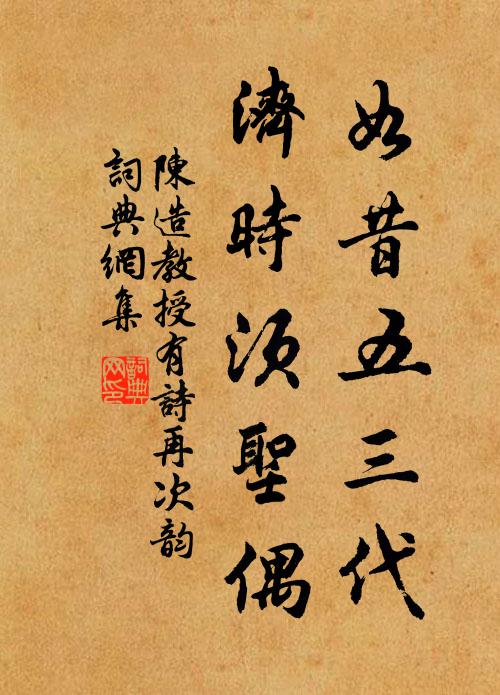 如昔五三代
濟時須聖偶
陳造教授有詩再次韵
詞典網集
詞典网印